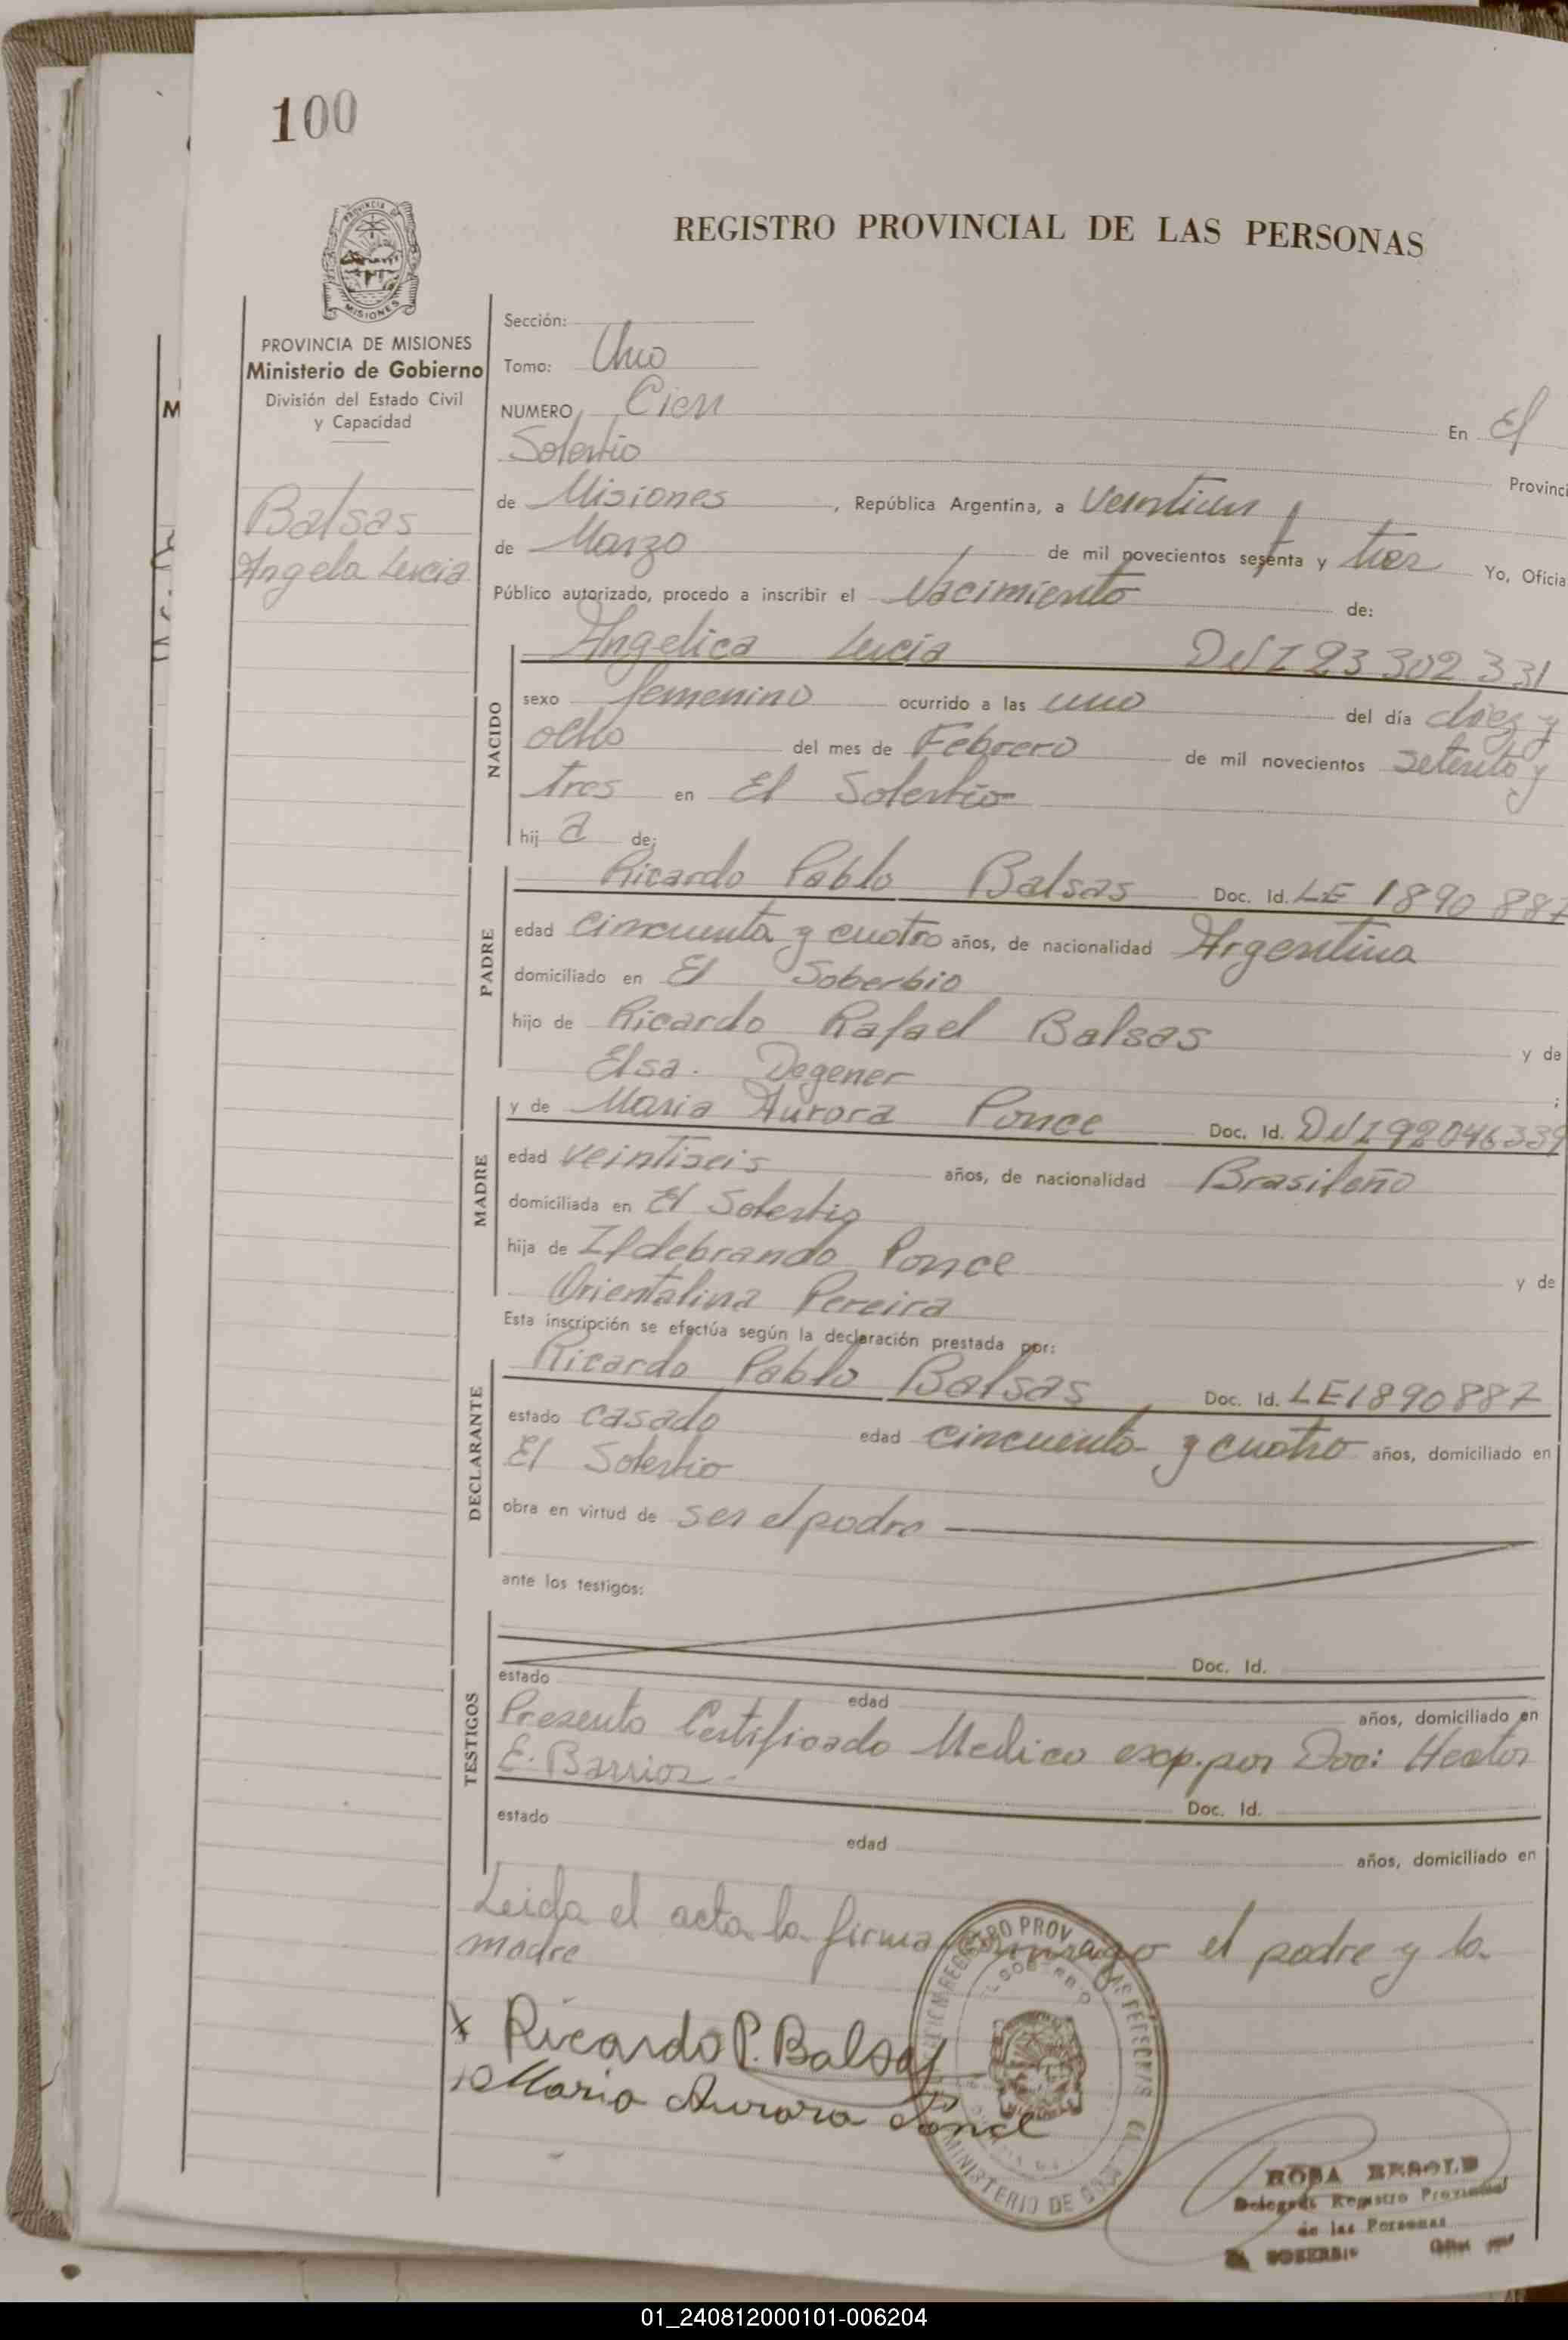 100
REGISTRO PROVINCIAL DE LAS PERSONAS
PROVINCIA DE
MISIONES
PROVINCIA DE MISIONES
Ministerio de Gobierno
División del Estado Civil
y Capacidad
Balsas
Angela Lucia
Sección:
Tomo: Uno
NUMERO Cien En El
Soberbio Provinci
de Misiones, República Argentina, a Veintiun
de Marzo de mil novecientos sesenta y tres Yo, Oficia
Público autorizado, procedo a inscribir el Nacimiento de:
NACIDO
Angelica Lucia DNI 23 302 331
sexo femenino ocurrido a las uno del día diez y
ocho del mes de Febrero de mil novecientos setenta y
tres en El Soberbio
hij a de:
PADRE
Ricardo Pablo Balsas Doc. Id. LE 1890 887
edad Cincuenta y cuatro años, de nacionalidad Argentina
domiciliado en El Soberbio
hijo de Ricardo Rafael Balsas y de
Elsa. Degener ;
MADRE
y de Maria Aurora Ponce Doc. Id. DNI 92046339
edad veintiseis años, de nacionalidad Brasileño
domiciliada en El Soberbio
hija de Ildebrando Ponce y de
Orientalina Pereira
Esta inscripción se efectúa según la declaración prestada por:
DECLARANTE
Ricardo Pablo Balsas Doc. Id. LE 1890887
estado casado edad cincuenta y cuatro años, domiciliado en
El Soberbio
obra en virtud de ser el padre
ante los testigos:
TESTIGOS
Doc. Id.
estado edad años, domiciliado en
Presento Certificado Medico exp. por Doc: Hector
E. Barrios.-
Doc. Id.
estado edad años, domiciliado en
Leida el acta la firma conmigo el padre y la
madre
x Ricardo P. Balsas
Maria Aurora Ponce
REGISTRO PROV. DE LAS PERSONAS
EL SOBERBIO
MINISTERIO DE
ROSA
Delegada Registro Provincial
de las Personas
EL SOBERBIO
01_240812000101-006204